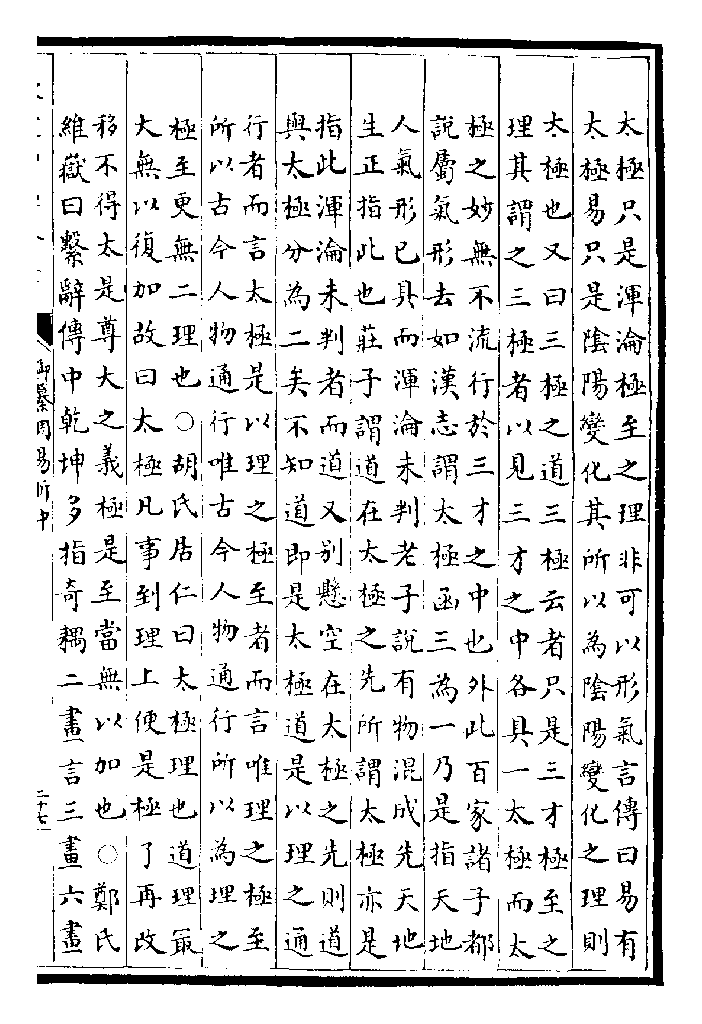 太極只是渾淪極至之理非可以形氣言傳曰易有
太極易只是陰陽變化其所以為陰陽變化之理則
太極也又曰三極之道三極云者只是三才極至之
理其謂之三極者以見三才之中各具一太極而太
極之妙無不流行於三才之中也外此百家諸子都
說屬氣形去如漢志謂太極函三為一乃是指天地
人氣形已具而渾淪未判老子說有物混成先天地
生正指此也莊子謂道在太極之先所謂太極亦是
指此渾淪未判者而道又别懸空在太極之先則道
與太極分為二矣不知道即是太極道是以理之通
行者而言太極是以理之極至者而言唯理之極至
所以古今人物通行唯古今人物通行所以為理之
極至更無二理也○胡氏居仁曰太極理也道理最
大無以復加故曰太極凡事到理上便是極了再改
移不得太是尊大之義極是至當無以加也○鄭氏
維嶽曰繫辭傳中乾坤多指奇耦二畫言三畫六畫
御纂周易折中
二十七